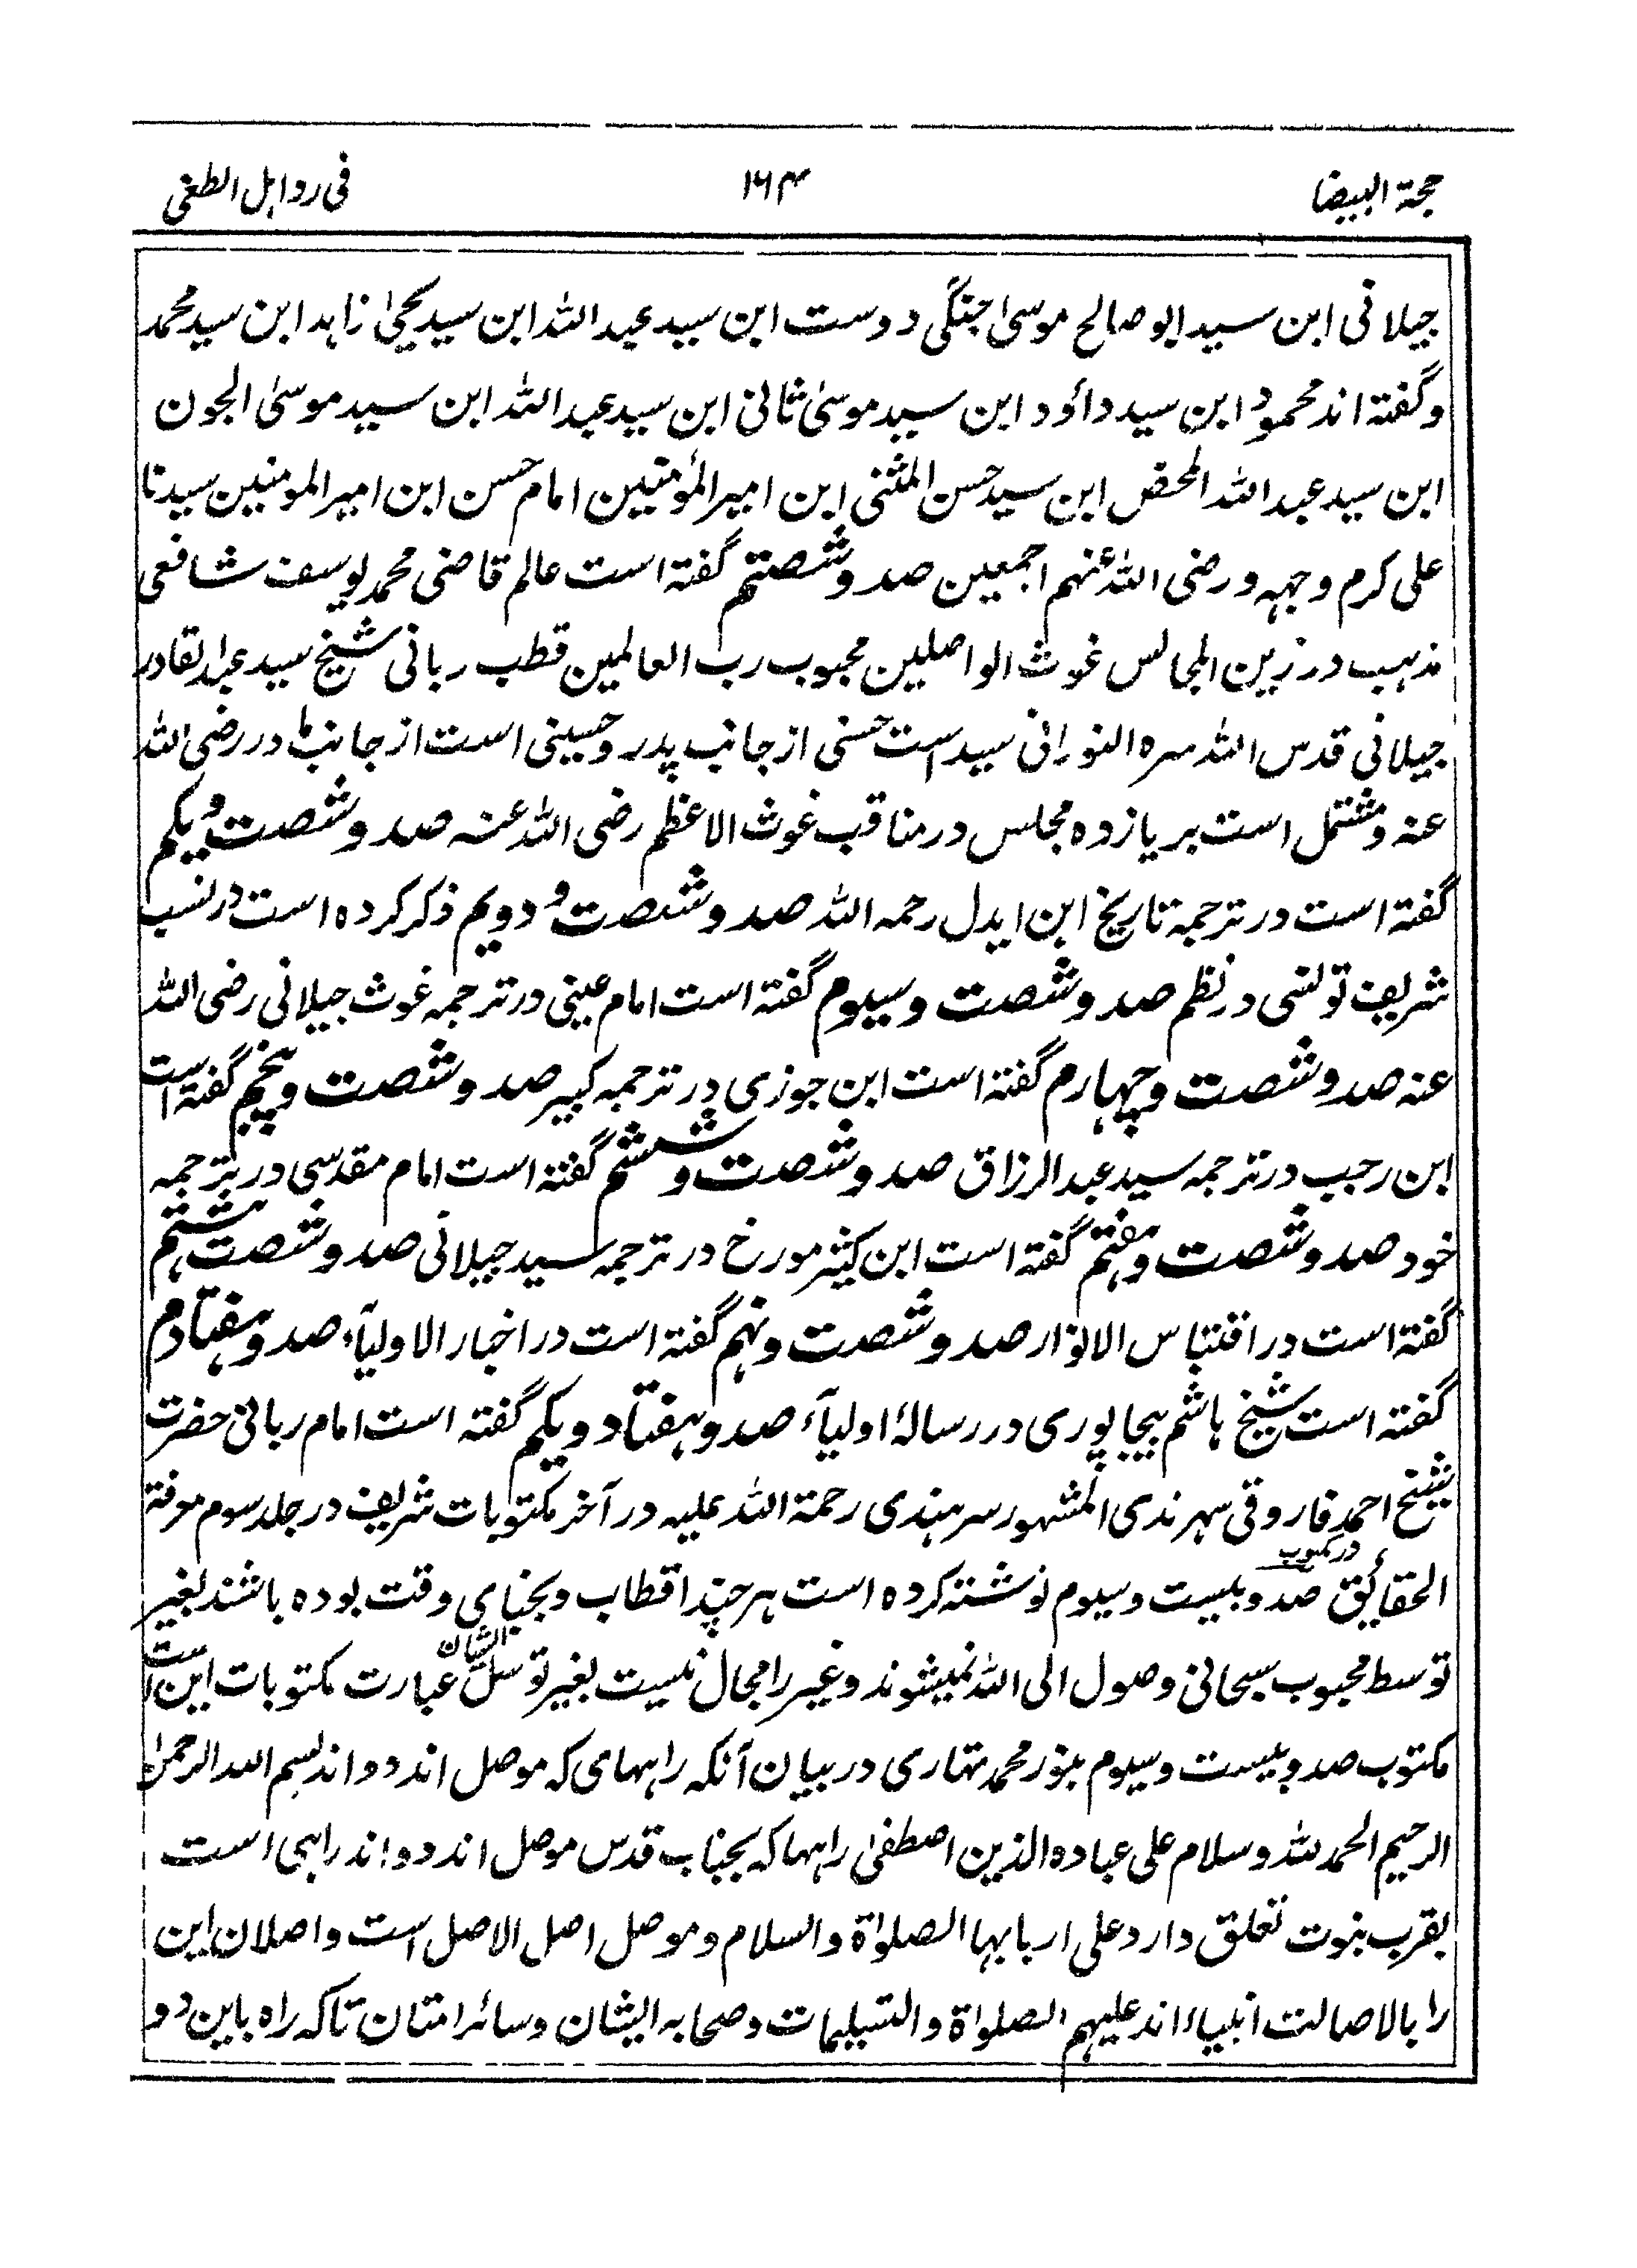 حجة البیضا ۱۶۴ فی رد اہل الطغی
جیلانی ابن سید ابو صالح موسیٰ جنگی دوست ابن سید عبد اللہ ابن سید یحیٰی زاہد ابن سید محمد
و گفتہ اند محمود ابن سید داؤد ابن سید موسیٰ ثانی ابن سید عبد اللہ ابن سید موسیٰ الجون
ابن سید عبد اللہ المحض ابن سید حسن المثنی ابن امیر المؤمنین امام حسن ابن امیر المومنین سیدنا
علی کرم وجہہ و رضی اللہ عنہم اجمعین صد و شصتم گفتہ است عالم قاضی محمد یوسف شافعی
مذہب در زین المجالس غوث الواصلین محبوب رب العالمین قطب ربانی شیخ سید عبد القادر
جیلانی قدس اللہ سرہ النورانی سید است حسنی از جانب پدر و حسینی است از جانب مادر رضی اللہ
عنہ و مشتمل است بر یازدہ مجلس در مناقب غوث الاعظم رضی اللہ عنہ صد و شصت و یکم
گفتہ است در ترجمہ تاریخ ابن ایدل رحمہ اللہ صد و شصت و دویم ذکر کردہ است در نسب
شریف تونسی در نظم صد و شصت و سیوم گفتہ است امام عینی در ترجمہ غوث جیلانی رضی اللہ
عنہ صد و شصت و چہارم گفتہ است ابن جوزی در ترجمہ کبیر صد و شصت و پنجم گفتہ است
ابن رجب در ترجمہ سید عبد الرزاق صد و شصت و ششم گفتہ است امام مقدسی در ترجمہ
خود صد و شصت و ہفتم گفتہ است ابن کثیر مورخ در ترجمہ سید جیلانی صد و شصت ہشتم
گفتہ است در اقتباس الانوار صد و شصت و نہم گفتہ است در اخبار الاولیآء صد و ہفتادم
گفتہ است شیخ ہاشم بیجاپوری در رسالۂ اولیآء صد و ہفتاد و یکم گفتہ است امام ربانی حضرت
شیخ احمد فاروقی سہرندی المشہور سرہندی رحمۃ اللہ علیہ در آخر مکتوبات شریف در جلد سوم معرفۃ
الحقائق در مکتوب صد و بیست و سیوم نوشتہ کردہ است ہر چند اقطاب و نجبای وقت بودہ باشند بغیر
توسط محبوب سبحانی وصول الی اللہ نمیشوند و غیر را مجال نیست بغیر توسل ایشان عبارت مکتوبات این است
مکتوب صد و بیست و سیوم بنور محمد تہاری در بیان آنکہ راہہای کہ موصل اند دو اند بسم اللہ الرحمن
الرحیم الحمد للہ و سلام علی عبادہ الذین اصطفیٰ راہہا کہ بجناب قدس موصل اند دو اند راہی است
بقرب نبوت تعلق دارد علی اربابہا الصلوٰۃ والسلام و موصل اصل الاصل است واصلان این
را بالاصالت انبیاء اند علیہم الصلوٰۃ والتسلیمات و صحابہ ایشان و سائر امتان تا کہ راہ باین دو